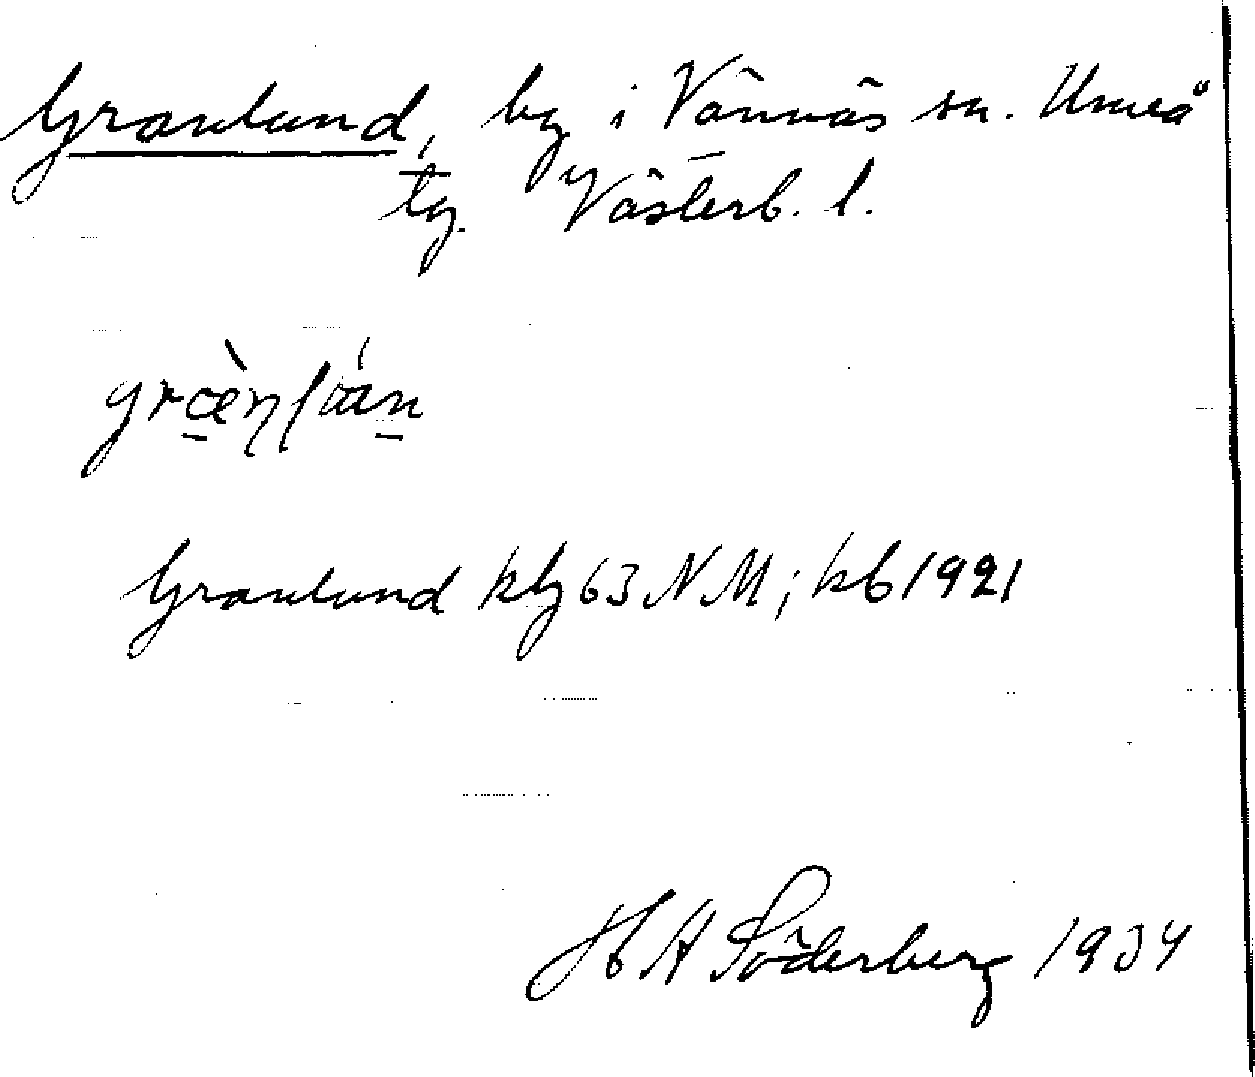 Granlund, by i Vännäs sn. Umeå
tg. Västerb. l.
Granlund kbg 63 NM; kb 1921
H A Söderberg 1934